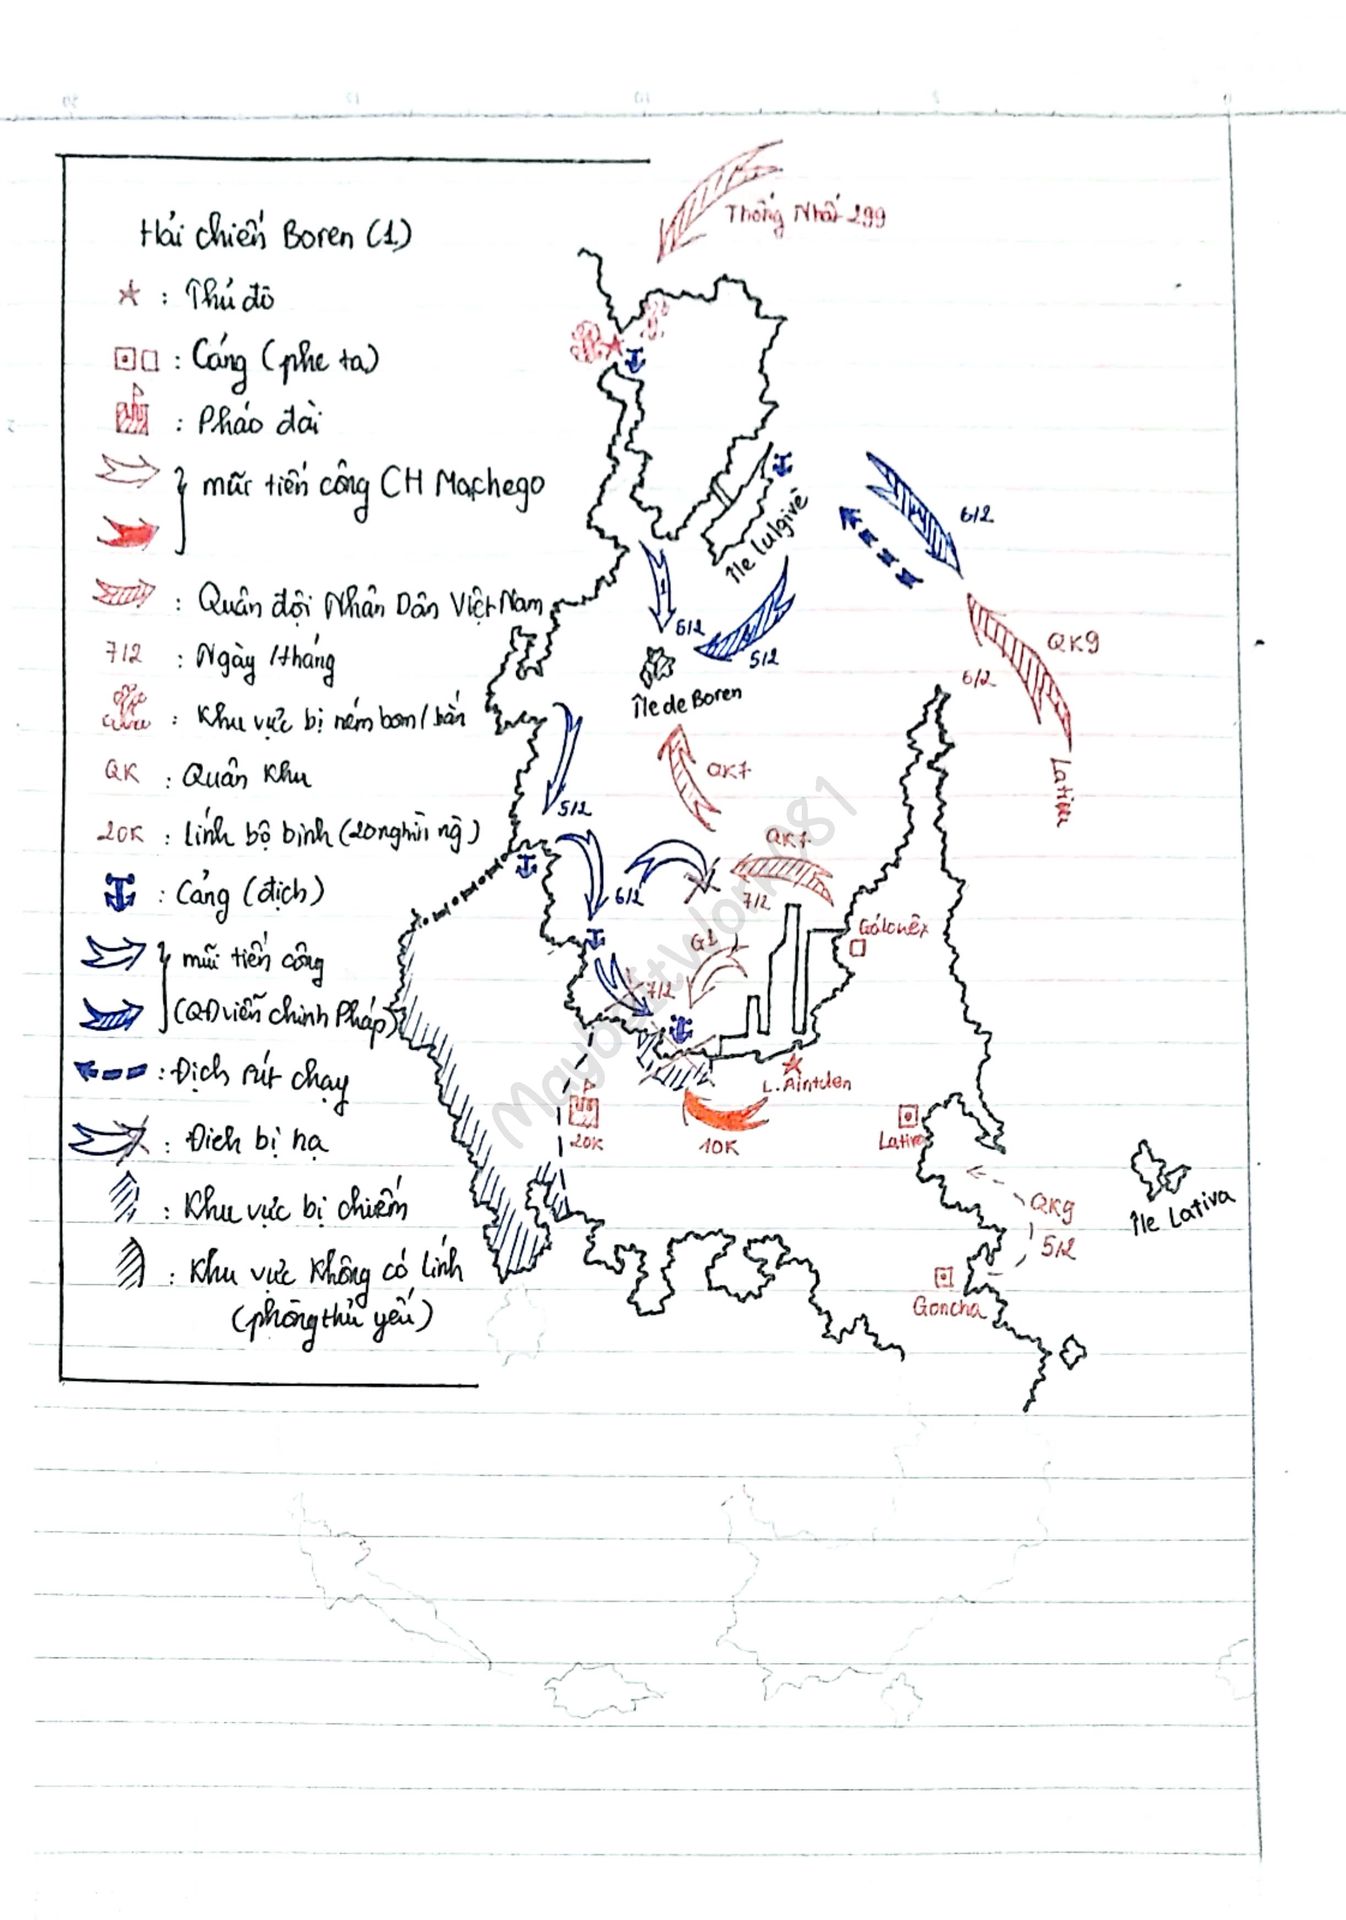 Hải chiến Boren (1)
: Thủ đô
: Cảng (phe ta)
: Pháo đài
: mũi tiến công CH Machego
: Quân đội Nhân Dân Việt Nam
7/2 : Ngày /tháng
: Khu vực bị ném bom/bắn
QK : Quân khu
20K : lính bộ binh (20 nghìn ng)
: Cảng (địch)
mũi tiến công
(QĐ viễn chinh Pháp)
: Địch rút chạy
: Địch bị hạ
: Khu vực bị chiếm
: Khu vực không có lính
(phòng thủ yếu)
Thống Nhất 299
île lulgivè
6/2
5/2
5/2
île de Boren
6/2
QK9
6/2
Lativa
QK7
5/2
QK7
6/2
7/2
G1
7/2
Gálonêx
L. Aintden
20K
10K
Lativa
QK9
5/2
île Lativa
Goncha
Maybeitwork081